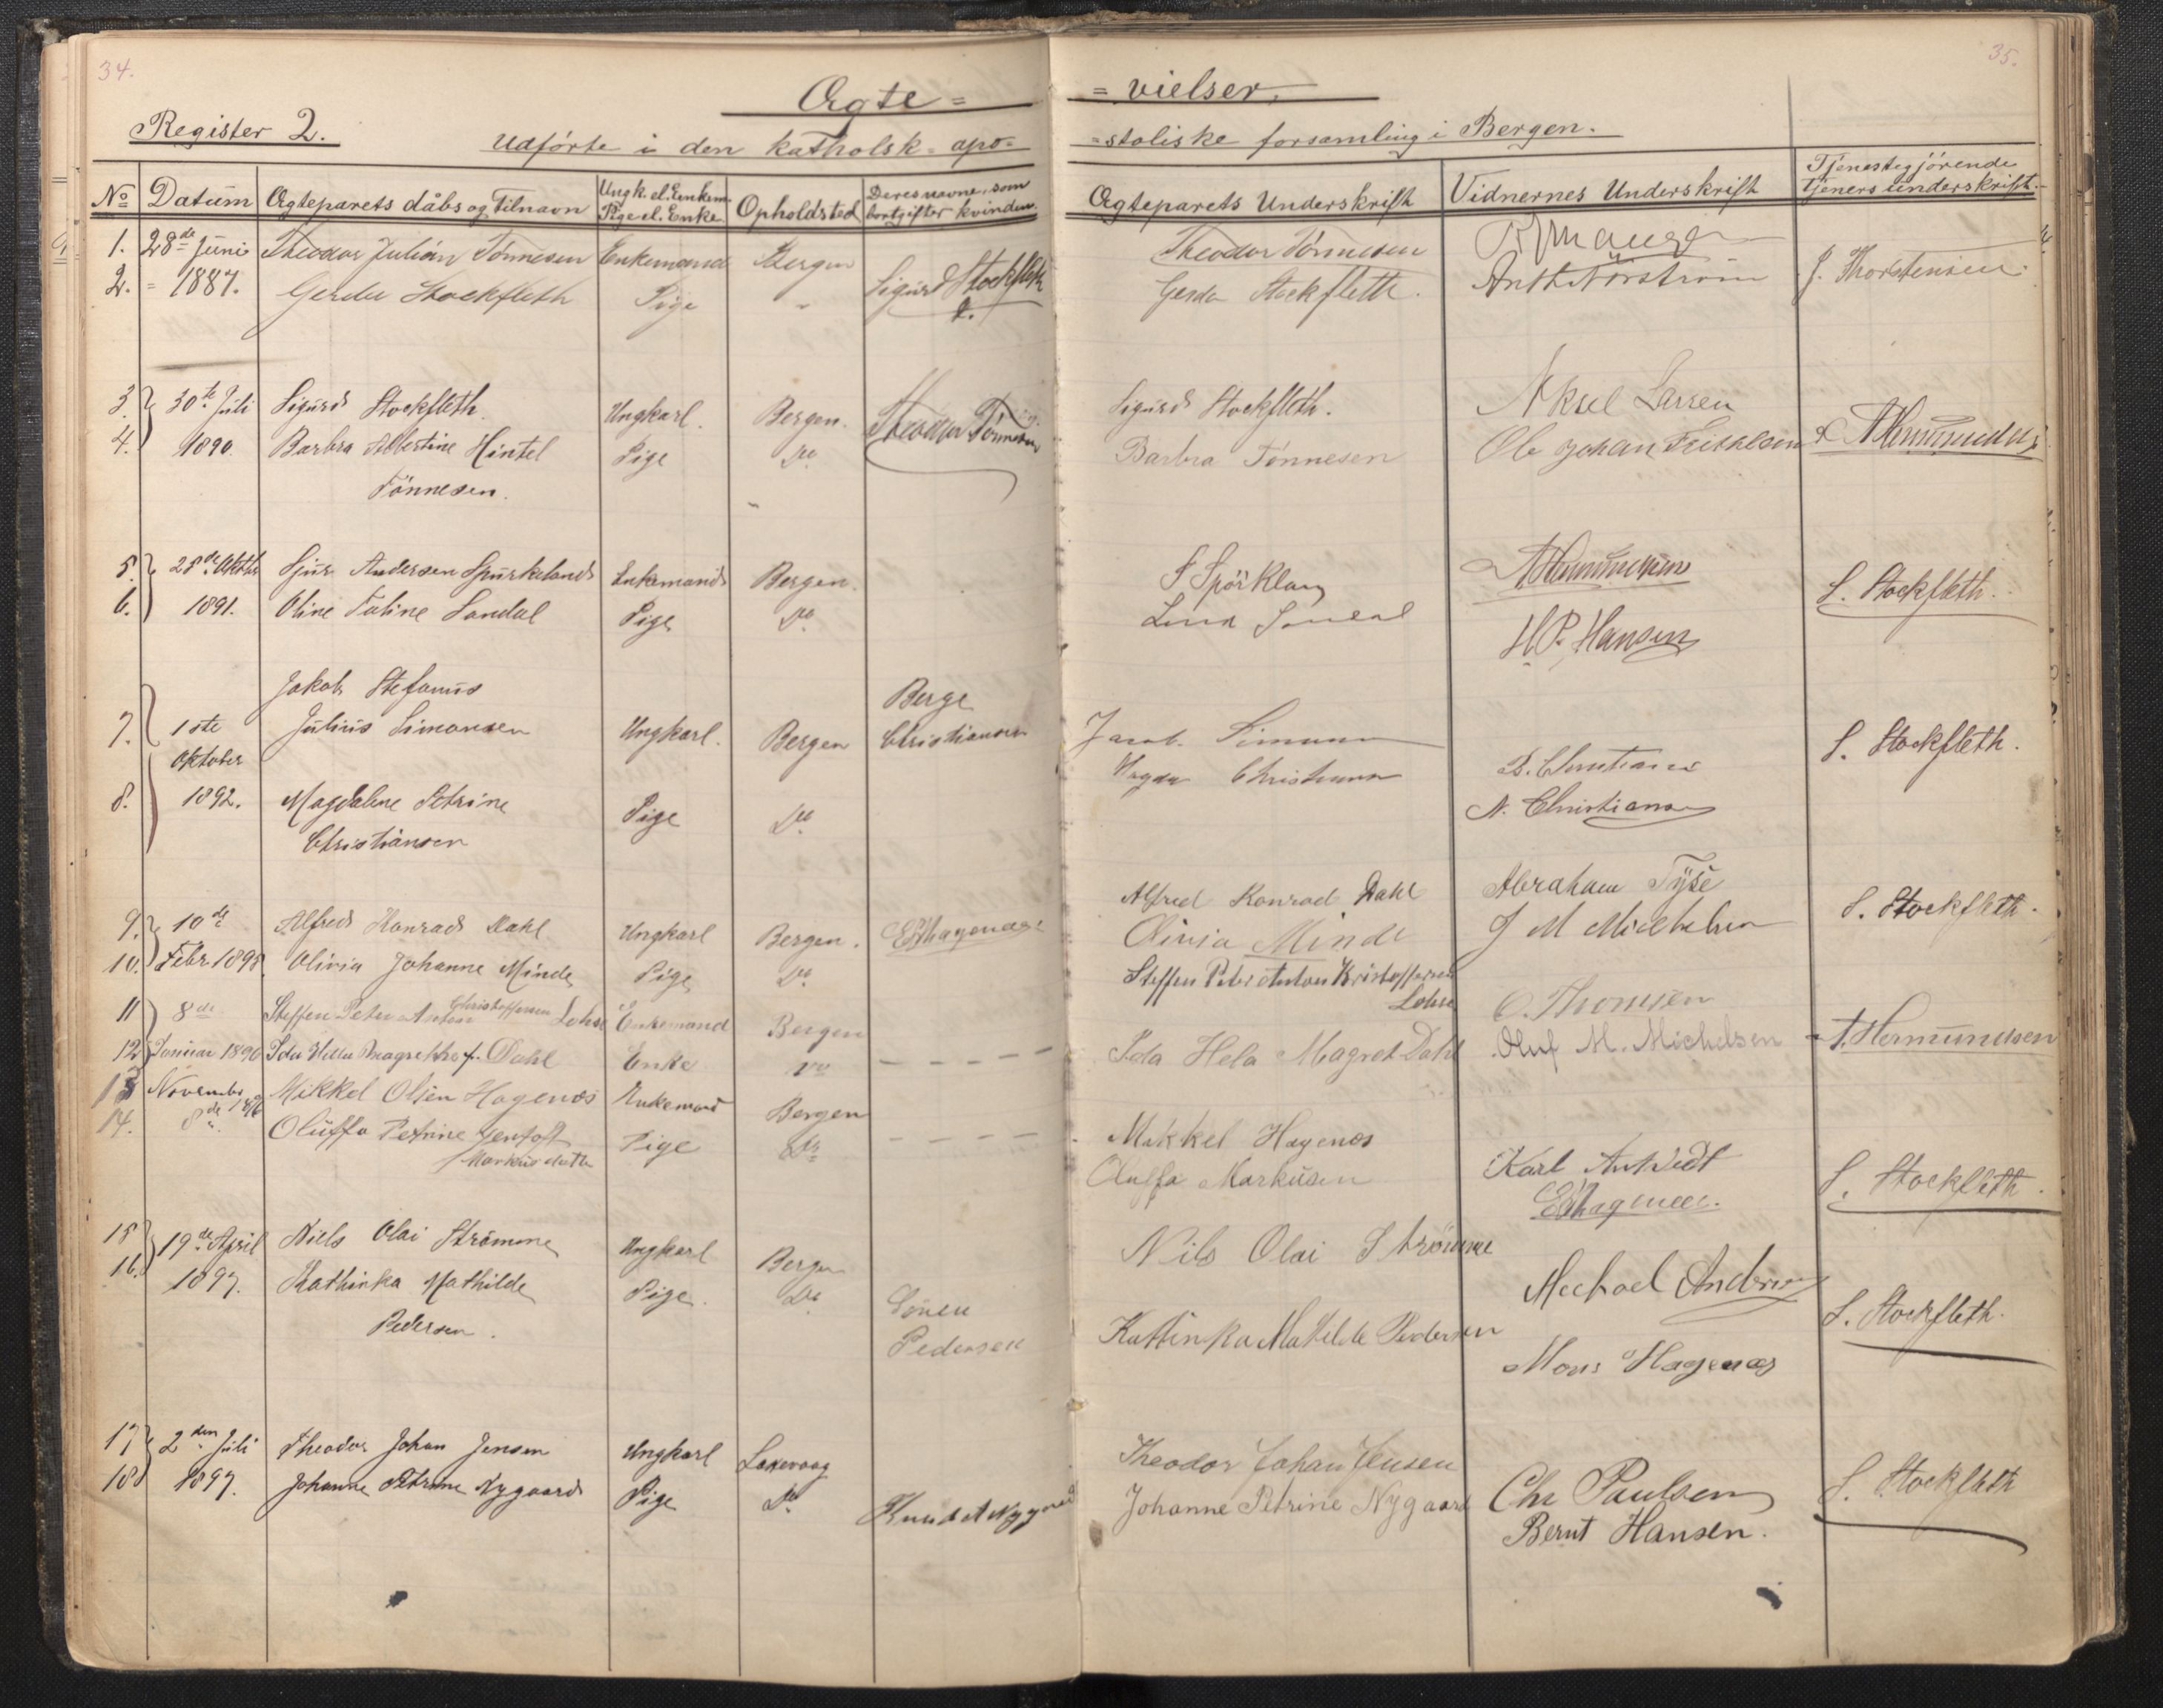 34.
Ægte =
Register 2.
Udførte i den katholsk = apo=
№ Datum Ægteparets dåbs og Tilnavn Ungk. el. Enkem. Pige el. Enke Opholdsted Deres navne, som bortgifter kvinden.
1. 28de Juni Theodor Julian Tønnesen Enkemand Bergen
2. - 1887. Gerda Stockfleth Pige " Sigurd Stockfleth
3. 30te Juli Sigurd Stockfleth. Ungkarl. Bergen. Theodor Tönnesen
4. 1890. Barbra Albertine Hintel Pige Do
Tönnesen.
5. 28de Oktbr Sjur Andersen Spurkelands Enkemand Bergen.
6. 1891. Oline Taline Sandal Pige Do
Jakob Stefanus Berge
7. 1ste Julius Simonsen Ungkarl. Bergen Christiansen
Oktober
8. 1892. Magdalene Petrine Pige Do
Christiansen
9. 10de Alfred Konrad Dahl Ungkarl Bergen. E Hagenæs
10. Febr 1895 Olivia Johanne Minde Pige Do
11 8de Steffen Peter Anton Christoffersen Lohse Enkemand Bergen
12 Januar 1896 Ida Hella Magrethe f. Dahl Enke Do
13 November Mikkel Olsen Hagenæs Enkemand Bergen
14. 8de 1896 Oluffa Petrine Gentoft Pige Do
Markusdatter
15 19de April Niels Olai Strömme Ungkarl Bergen
16. 1897. Kathinka Mathilde Pige. Do Sören
Pedersen. Pedersen
17 2den Juli Theodor Johan Jensen Ungkarl Laxevaag
18 1897. Johanne Petrine Nygaard Pige Do Knud A Nygaard
35.
= vielser.
=stoliske forsamling i Bergen.
Ægteparets Underskrift Vidnernes Underskrift Tjenestegjörende tjeners underskrift.
Theodor Tönnesen
Gerda Stockfleth. Anth Nörström J. Thorstensen
Sigurd Stockfleth. Aksel Larsen
Barbra Tönnesen Ole Johan A Hermundsen
S Spörkland A Hermundsen
H. P. Hansen S. Stockfleth.
Jacob Simonsen S. Stockfleth.
Magda Christiansen B. Christiansen
N. Christiansen
Alfred Konrad Dahl Abraham Tysse
Olivia Minde J M Michelsen S. Stockfleth.
Steffen Peter Anton Kristoffersen
Lohse O. Thomsen
Ida Hela Magret Dahl Oluf M. Michelsen A. Hermundsen
Mikkel Hagenæs Karl Antvedt
Oluffa Markusen E Hagenæs. S. Stockfleth.
Nils Olai Strömme Michael Andersen
Kathinka Matilde Pedersen S. Stockfleth.
Mons Hagenæs
Theodor Johan Jensen
Johanne Petrine Nygaard Chr Paulsen S. Stockfleth
Bernt Hansen.